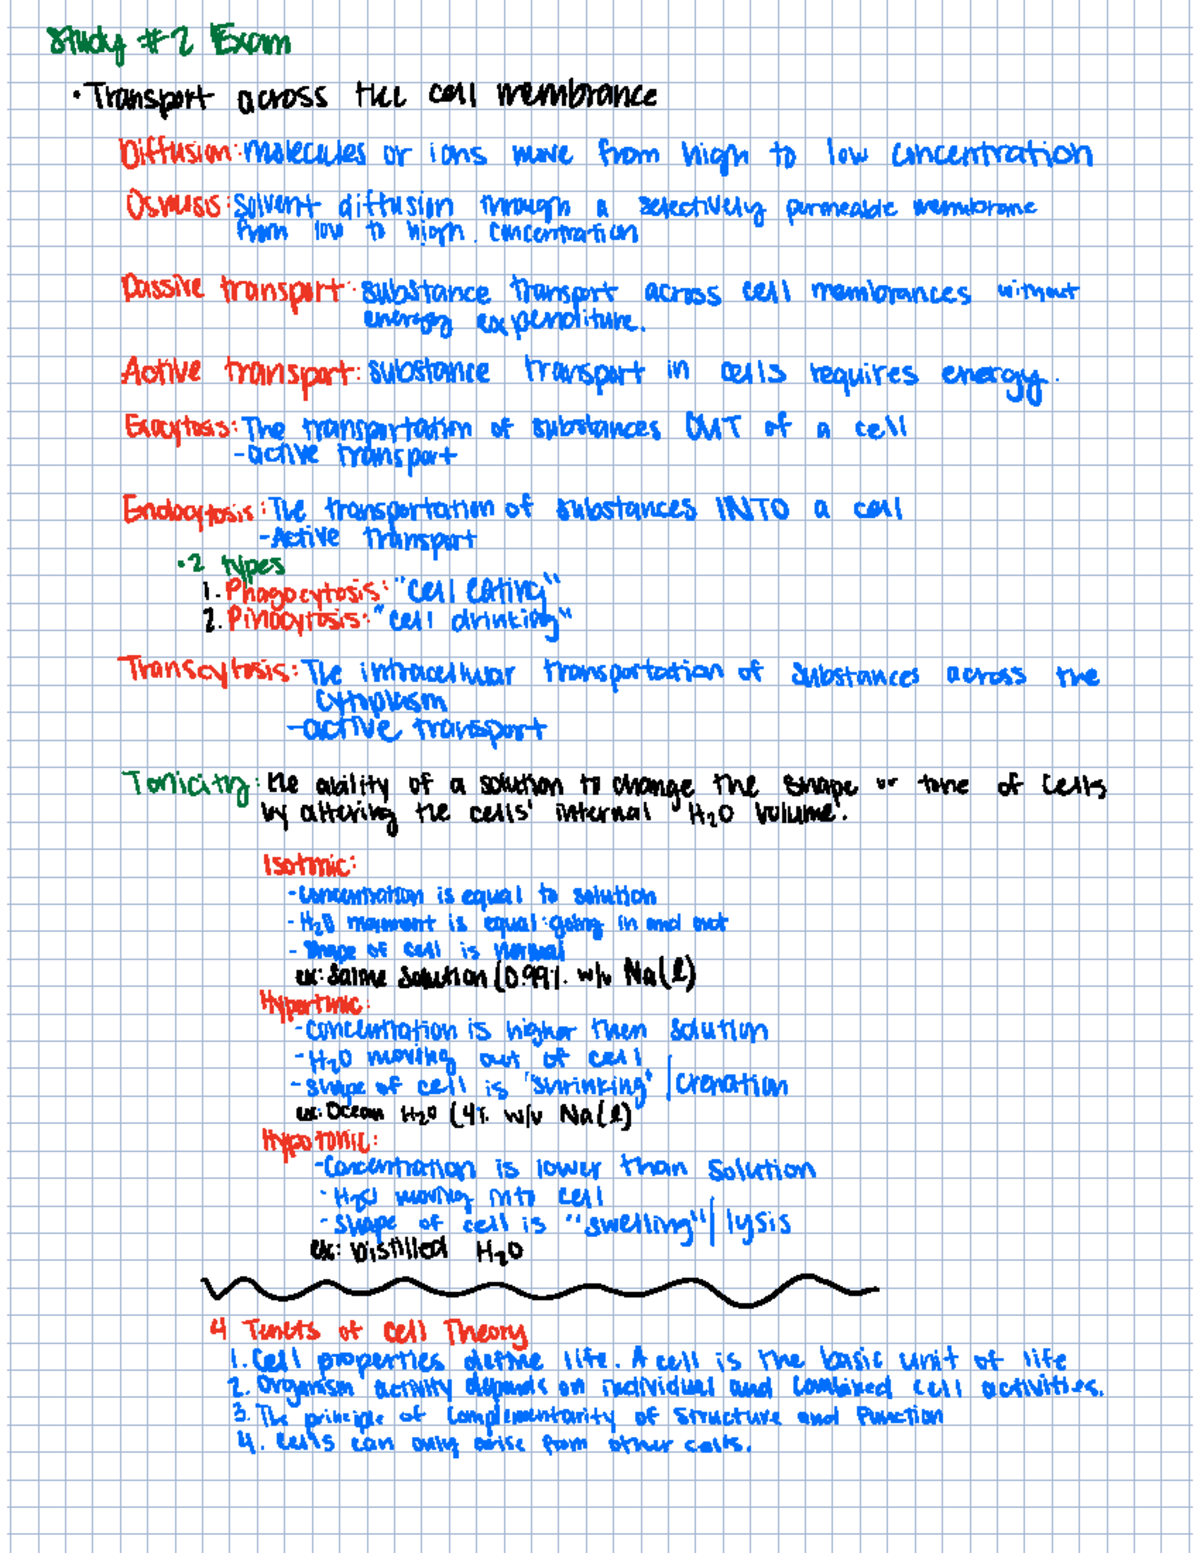 Study #2 Exam
• Transport across the cell membrance
Diffusion: molecules or ions move from high to low concentration
Osmosis: Solvent diffusion through a selectively permeable membrane
from low to high. concentration
Passive transport: substance transport across cell membrances without
energy expenditure.
Active transport: substance transport in cells requires energy.
Exocytosis: The transportation of substances OUT of a cell
- active transport
Endocytosis: The transportation of substances INTO a cell
- Active transport
• 2 types
1. Phagocytosis: "cell eating"
2. Pinocytosis: "cell drinking"
Transcytosis: The intracellular transportation of substances across the
cytoplasm
- active transport
Tonicity: the ability of a solution to change the shape or tone of cells
by altering the cells' internal H₂O volume.
Isotonic:
- concentration is equal to solution
- H₂O movement is equal: going in and out
- Shape of cell is normal
ex: Saline Solution (0.99% w/v NaCl)
Hypertonic:
- concentration is higher then solution
- H₂O moving out of cell
- shape of cell is "shrinking" | crenation
ex: Ocean H₂O (4% w/v NaCl)
Hypotonic:
- Concentration is lower than solution
- H₂O moving into cell
- shape of cell is "swelling" | lysis
ex: Distilled H₂O
4 Tenets of Cell Theory
1. Cell properties define life. A cell is the basic unit of life
2. Organism activity depends on individual and combined cell activities.
3. The principle of Complementarity of Structure and Function
4. Cells can only arise from other cells.